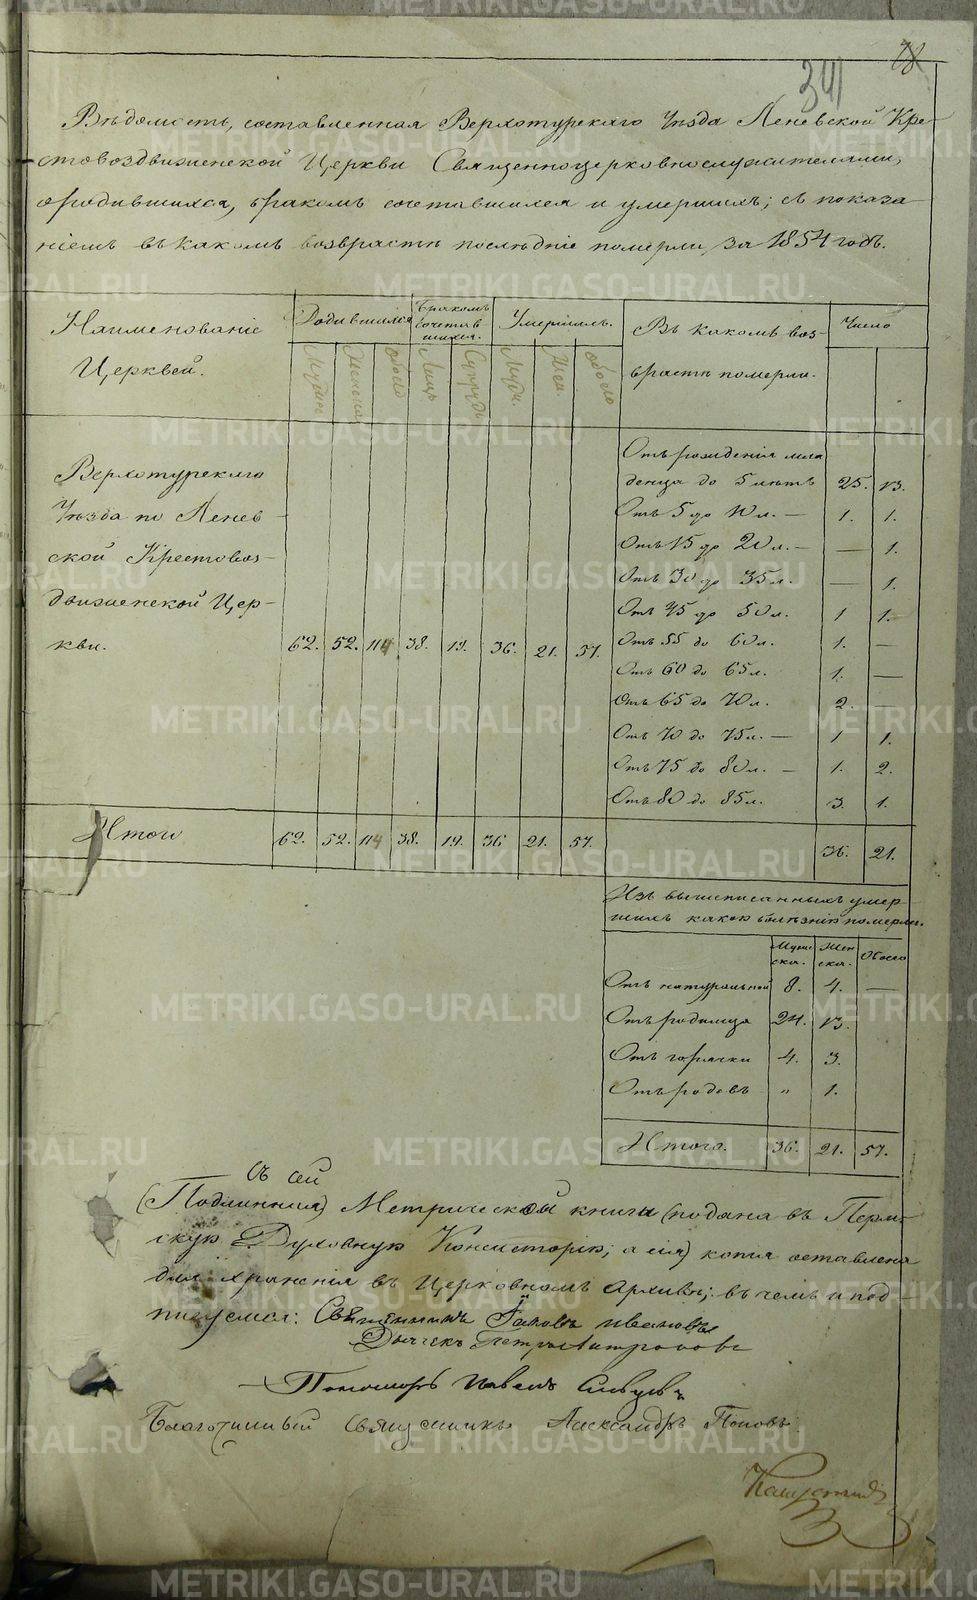 78
341
Вѣдомость, составленная Верхотурскаго Уѣзда Леневской Кре-
стовоздвиженской Церкви Священноцерковнослужителями,
ородившихся, бракомъ сочетавшихся и умершихъ; съ показа-
ніемъ въ какомъ возврастѣ послѣдніе померли, за 1854 годъ.
Наименованіе Церквей.
Родившихся
Бракомъ сочетав шихся.
Умершихъ.
Въ какомъ воз-
врастѣ померли.
Число
Мужес. Женска. Обоего Лицъ Супруж. Муж. Жен. Обоего
Верхотурскаго
Уѣзда по Ленев-
ской Крестовоз-
движенской Цер-
кви. 62. 52. 114 38. 19. 36. 21. 57.
Отъ рожденія мла
денца до 5 лѣтъ 25. 13.
Отъ 5 до 10 л. — 1. 1.
Отъ 15 до 20 л. — — 1.
Отъ 30 до 35 л. — 1.
Отъ 45 до 50 л. 1 1.
Отъ 55 до 60 л. 1. —
Отъ 60 до 65 л. 1. —
Отъ 65 до 70 л. 2 —
Отъ 70 до 75 л. — 1 1.
Отъ 75 до 80 л. — 1. 2.
Отъ 80 до 85 л. 3. 1.
Итого 62. 52. 114 38. 19. 36 21. 57. 36. 21.
Изъ вышеписанныхъ умер-
шихъ какою болѣзнію померли.
Мужес ска. Жен ска. Обоего
Отъ натуральной 8. 4. —
Отъ родимца 24. 13.
Отъ горячки 4. 3.
Отъ родовъ " 1.
Итого. 36. 21. 57.
Съ сей
(Подлинная) Метрической книги (подана въ Перм-
скую Духовную Консисторію; а сія) копія оставлена
для храненія въ Церковномъ Архивѣ; въ чемъ и под-
писуемся: Священникъ Іаковъ Ивановъ
Дьячекъ Петръ
Пономарь Павелъ
Благочинный Священникъ Александръ Поповъ
METRIKI.GASO-URAL.RU